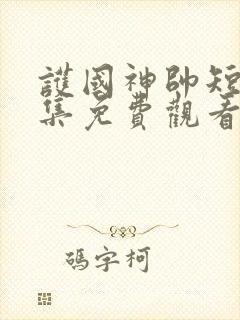 護國神帥短
集免費觀看
碼字柯